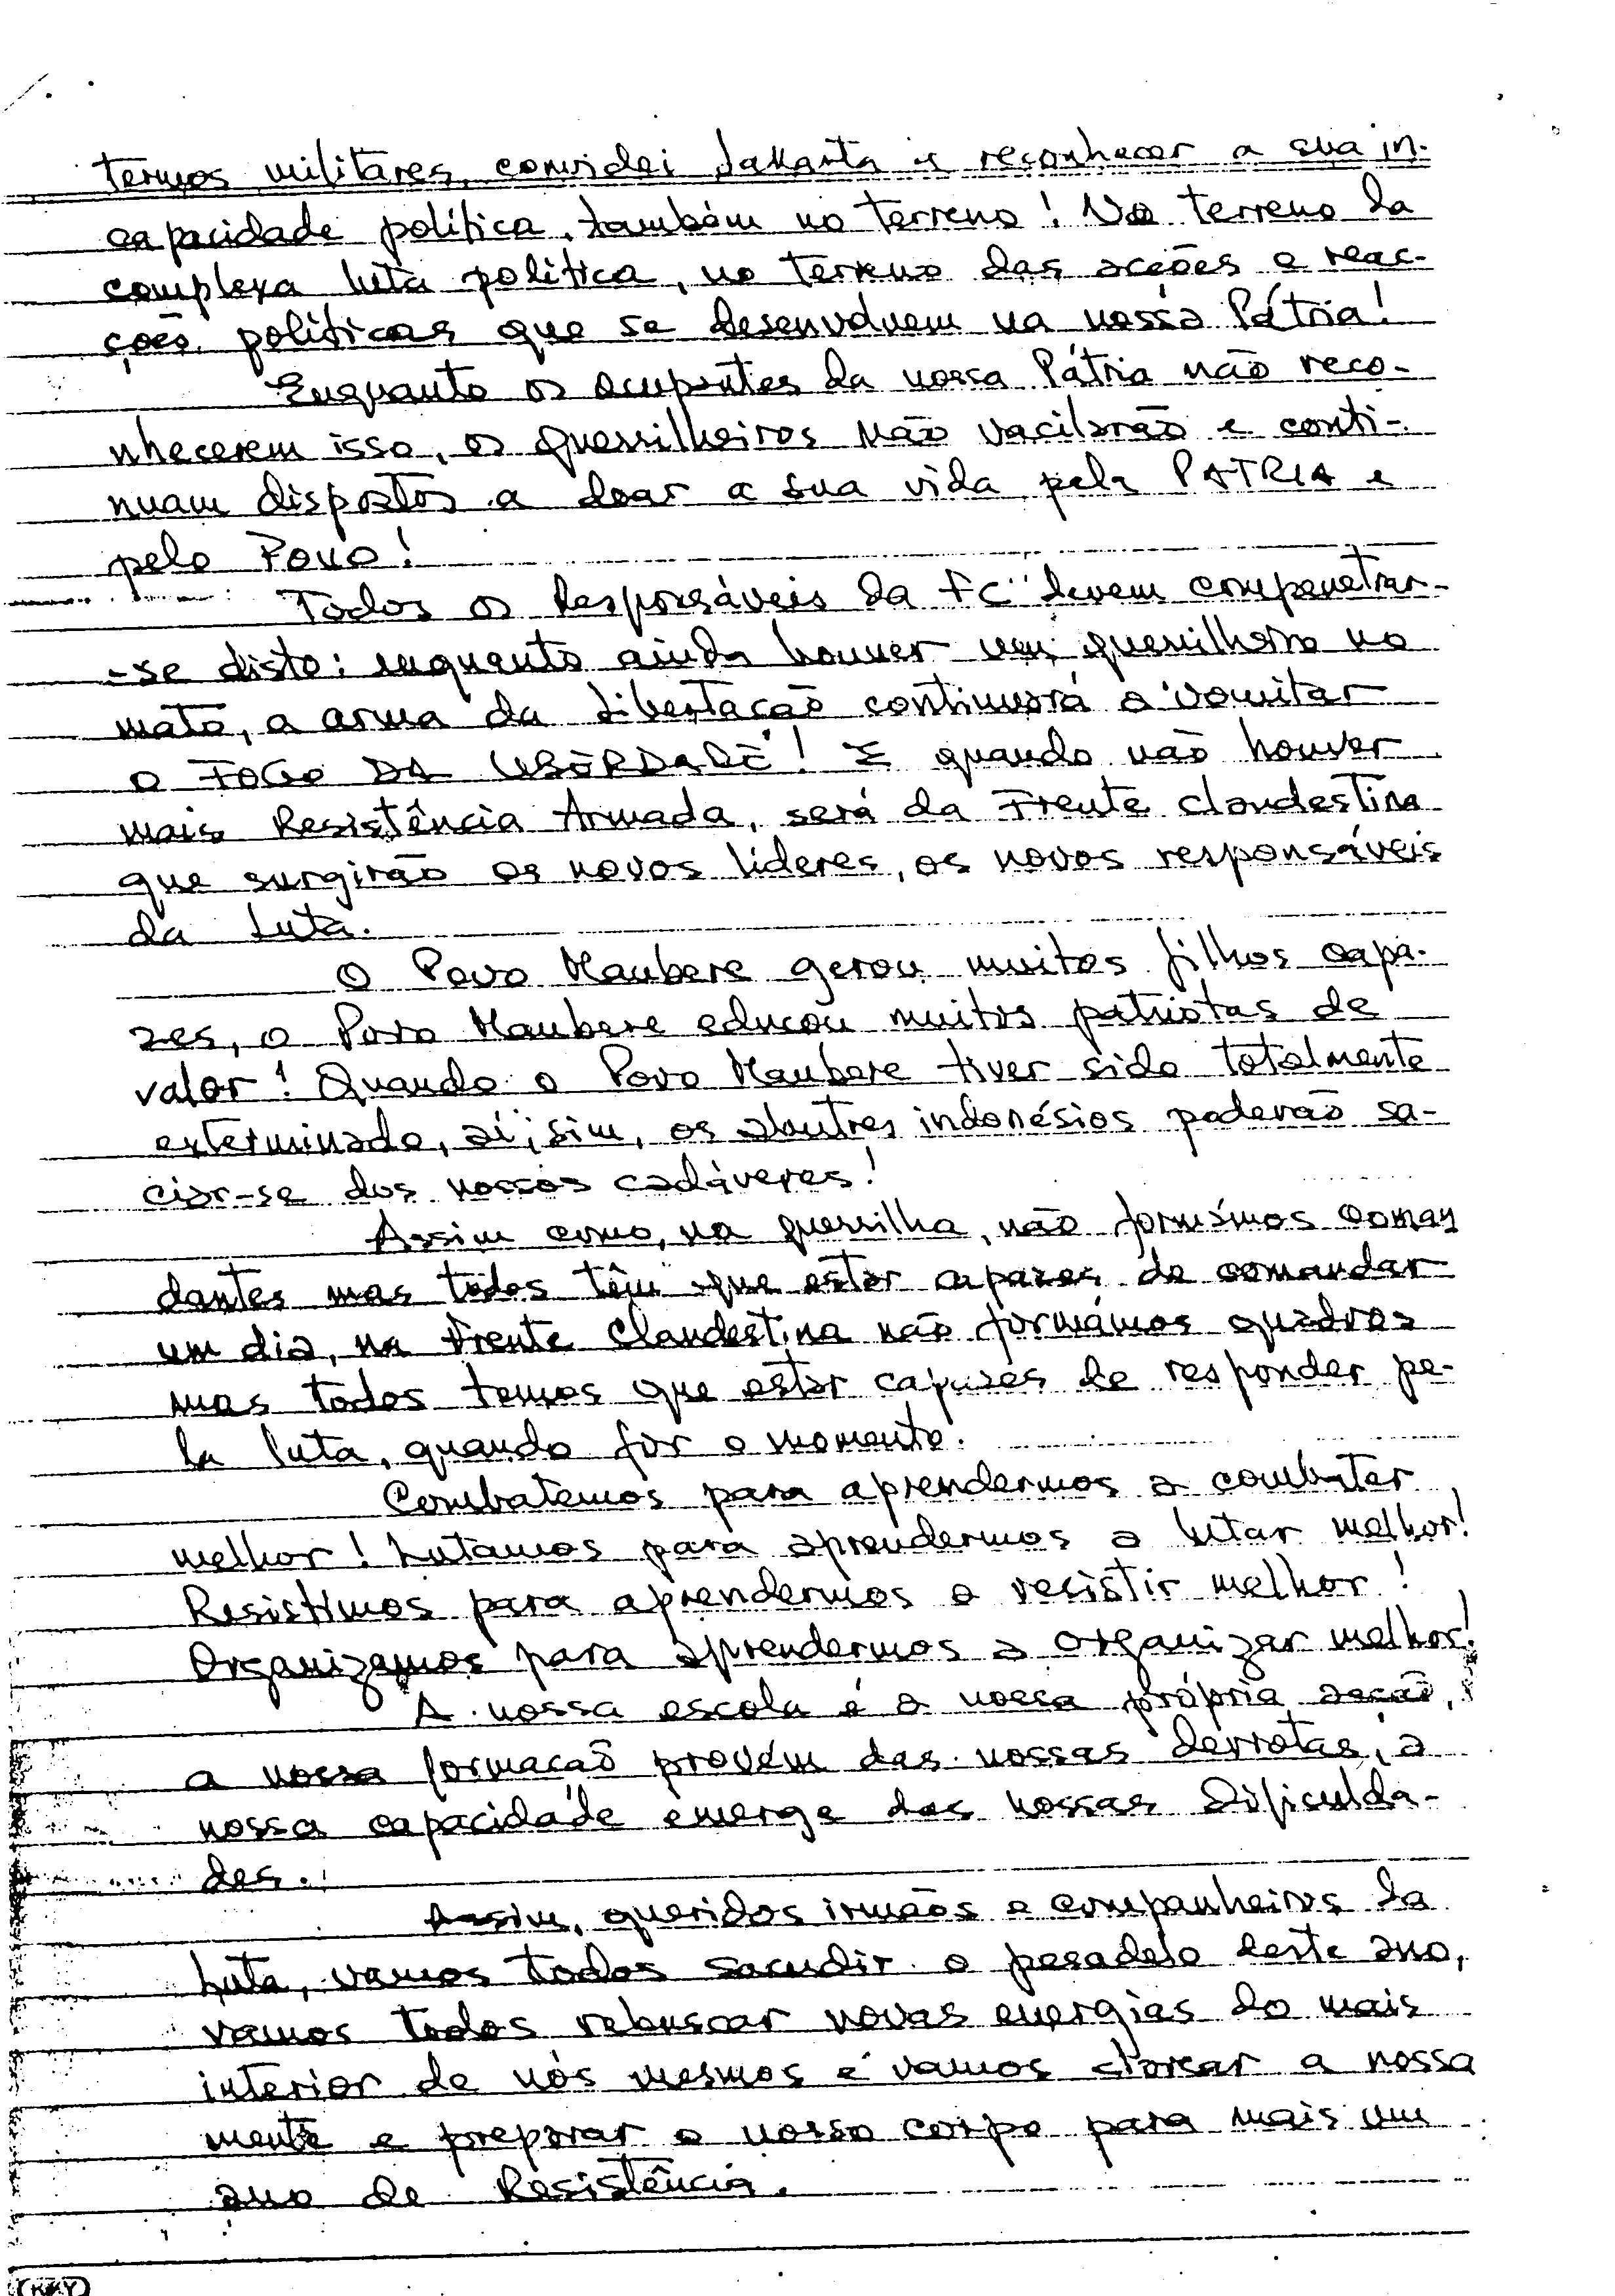 termos militares, convidei Jakarta a reconhecer a sua in-
capacidade política, também no terreno! No terreno da
complexa luta política, no terreno das acções e reac-
ções políticas que se desenvolvem na nossa Pátria!
Enquanto os ocupantes da nossa Pátria não reco-
nhecerem isso, os guerrilheiros não vacilarão e conti-
nuam dispostos a doar a sua vida pela PATRIA e
pelo Povo!
Todos os Responsáveis da FC devem compenetrar-
-se disto: enquanto ainda houver um guerrilheiro no
mato, a arma da Libertação continuará a vomitar
o FOGO DA LIBERDADE! E quando não houver
mais Resistência Armada, será da Frente Clandestina
que surgirão os novos líderes, os novos responsáveis
da Luta.
O Povo Maubere gerou muitos filhos capa-
zes, o Povo Maubere educou muitos patriotas de
valor! Quando o Povo Maubere tiver sido totalmente
exterminado, aí, sim, os abutres indonésios poderão sa-
ciar-se dos nossos cadáveres!
Assim como, na guerrilha, não formámos coman
dantes mas todos têm que estar capazes de comandar
um dia, na Frente Clandestina não formámos quadros
mas todos temos que estar capazes de responder pe-
la luta, quando fôr o momento.
Combatemos para aprendermos a combater
melhor! Lutamos para aprendermos a lutar melhor!
Resistimos para aprendermos a resistir melhor!
Organizamos para aprendermos a organizar melhor!
A nossa escola é a nossa própria acção,
a nossa formação provém das nossas derrotas, a
nossa capacidade emerge das nossas dificulda-
des.
Assim, queridos irmãos e companheiros da
Luta, vamos todos sacudir o pesadelo deste ano,
vamos todos rebuscar novas energias do mais
interior de nós mesmos e vamos clarear a nossa
mente e preparar o nosso corpo para mais um
ano de Resistência.